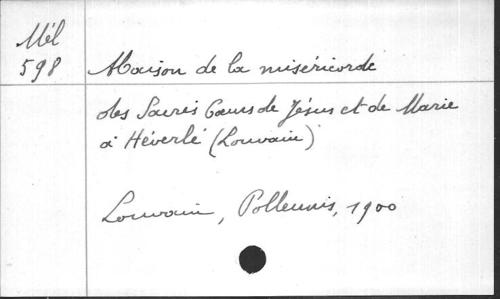 Mél
598
Maison de la miséricorde
des Sacrés Cœurs de Jésus et de Marie
à Héverlé (Louvain)
Louvain, Polleunis, 1900